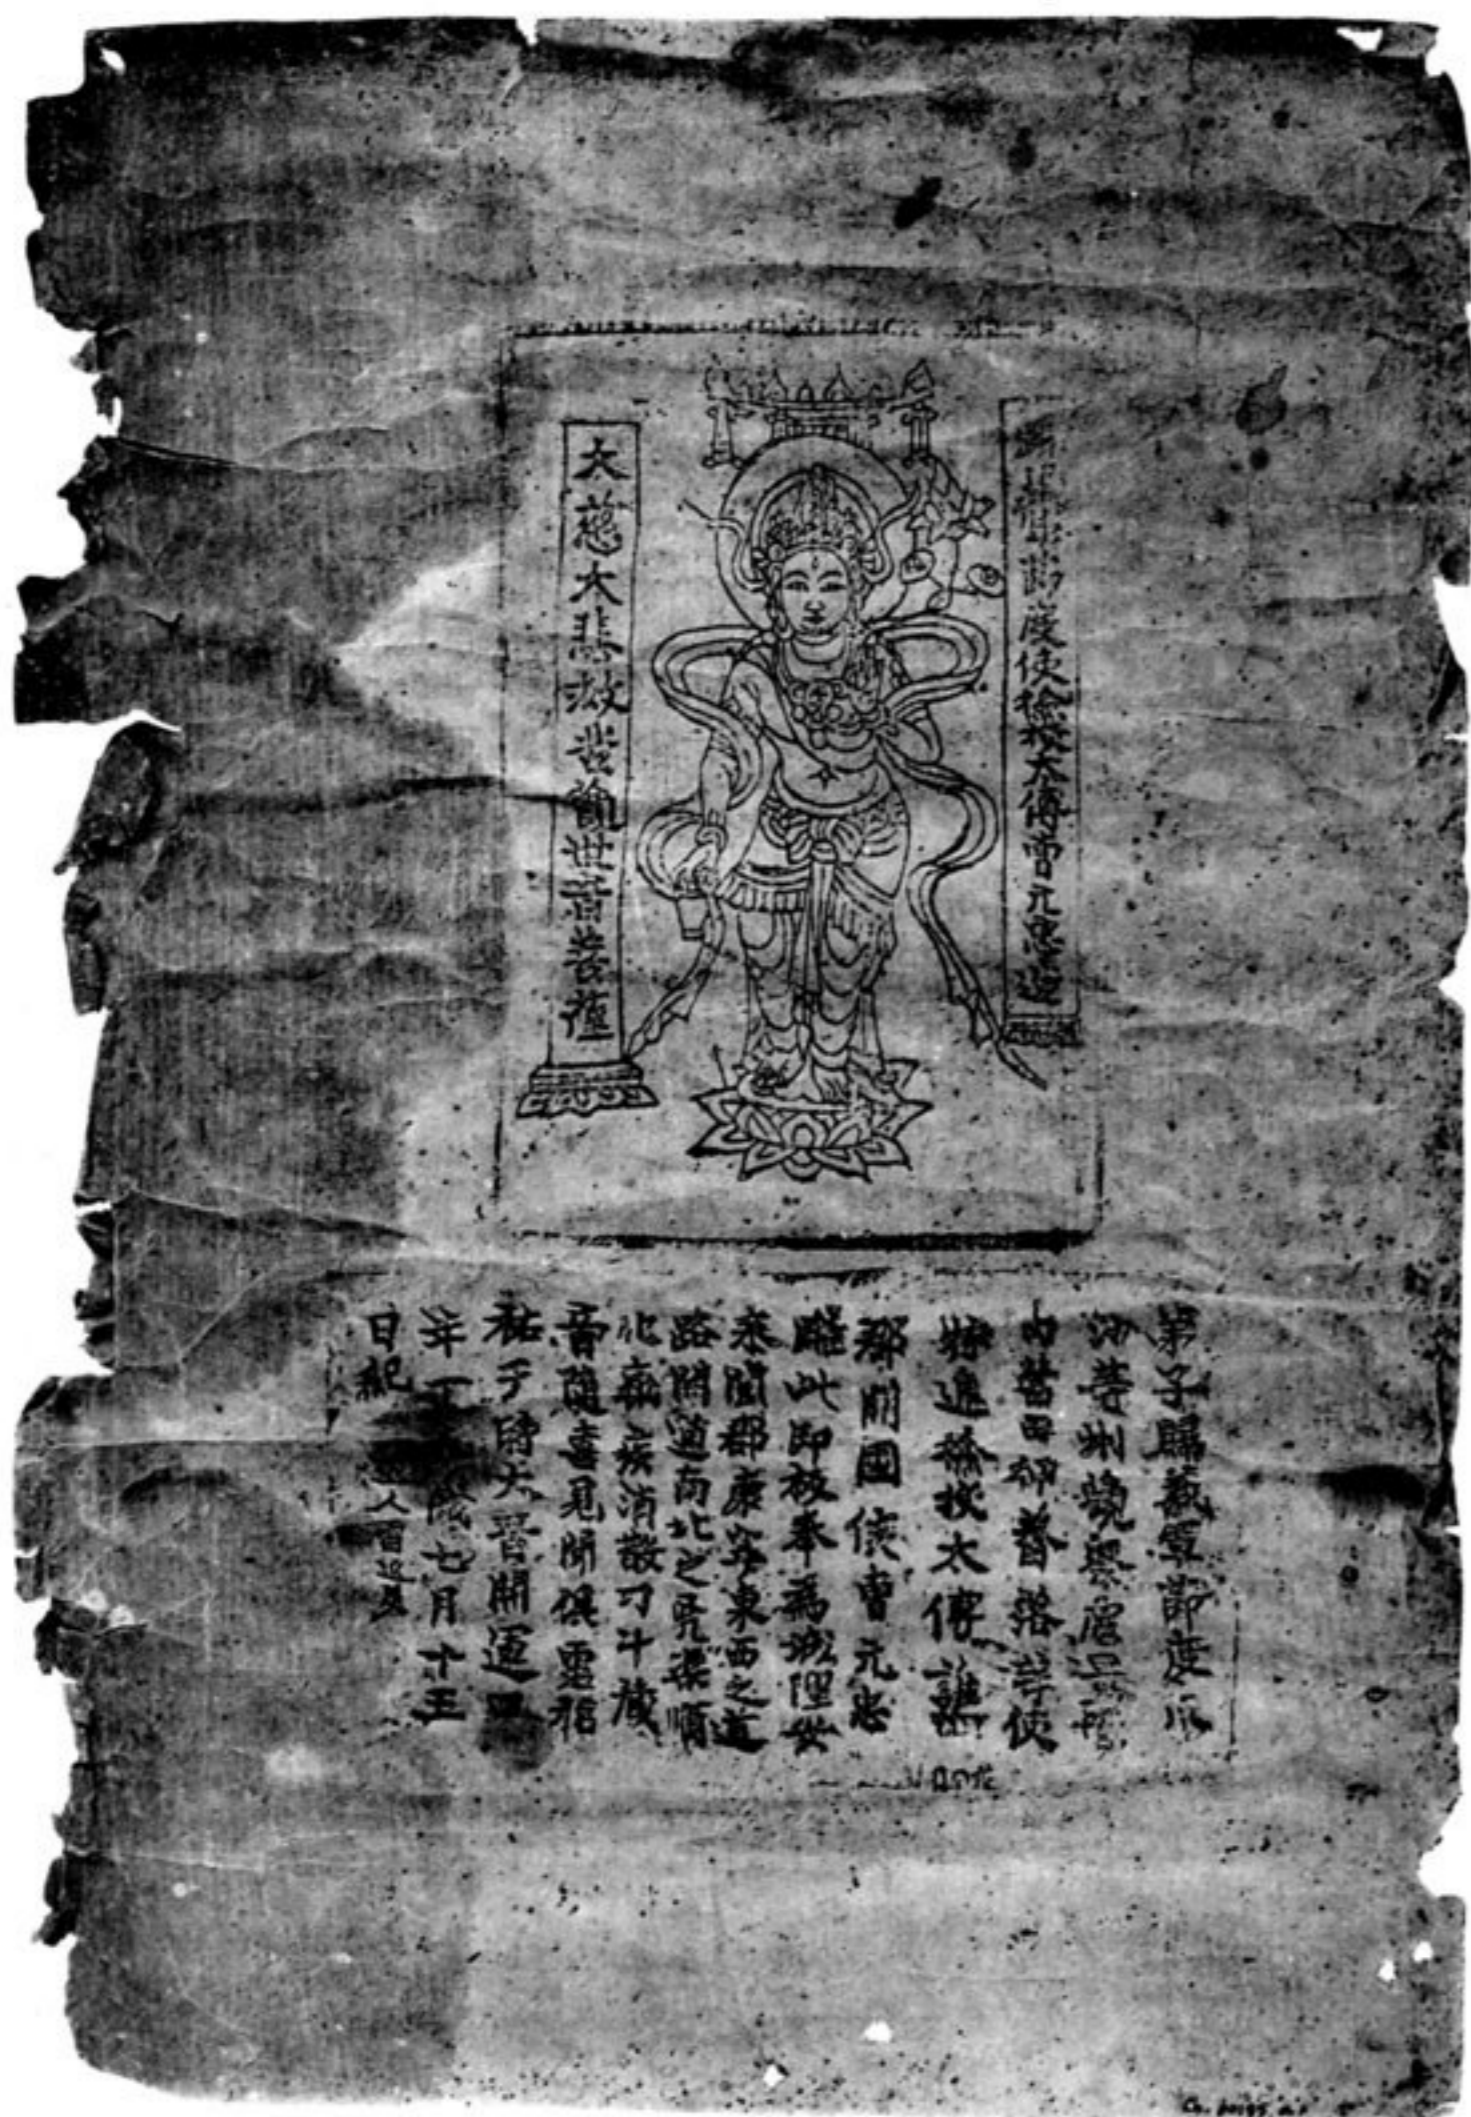 歸義軍節度使檢校太傅曹元忠造
大慈大悲救苦觀世音菩薩
弟子歸義軍節度瓜
沙等州觀察處置管
內營田押蕃落等使
特進檢校太傅譙
郡開國侯曹元忠
雕此印板奉為城隍安
泰闔郡康寧東西之道
路開通南北之兇渠順
化癘疾消散刁斗藏
音隨喜見聞俱霑福
祐于時大晉開運四
年丁未歲七月十五
日紀 匠人雷延美